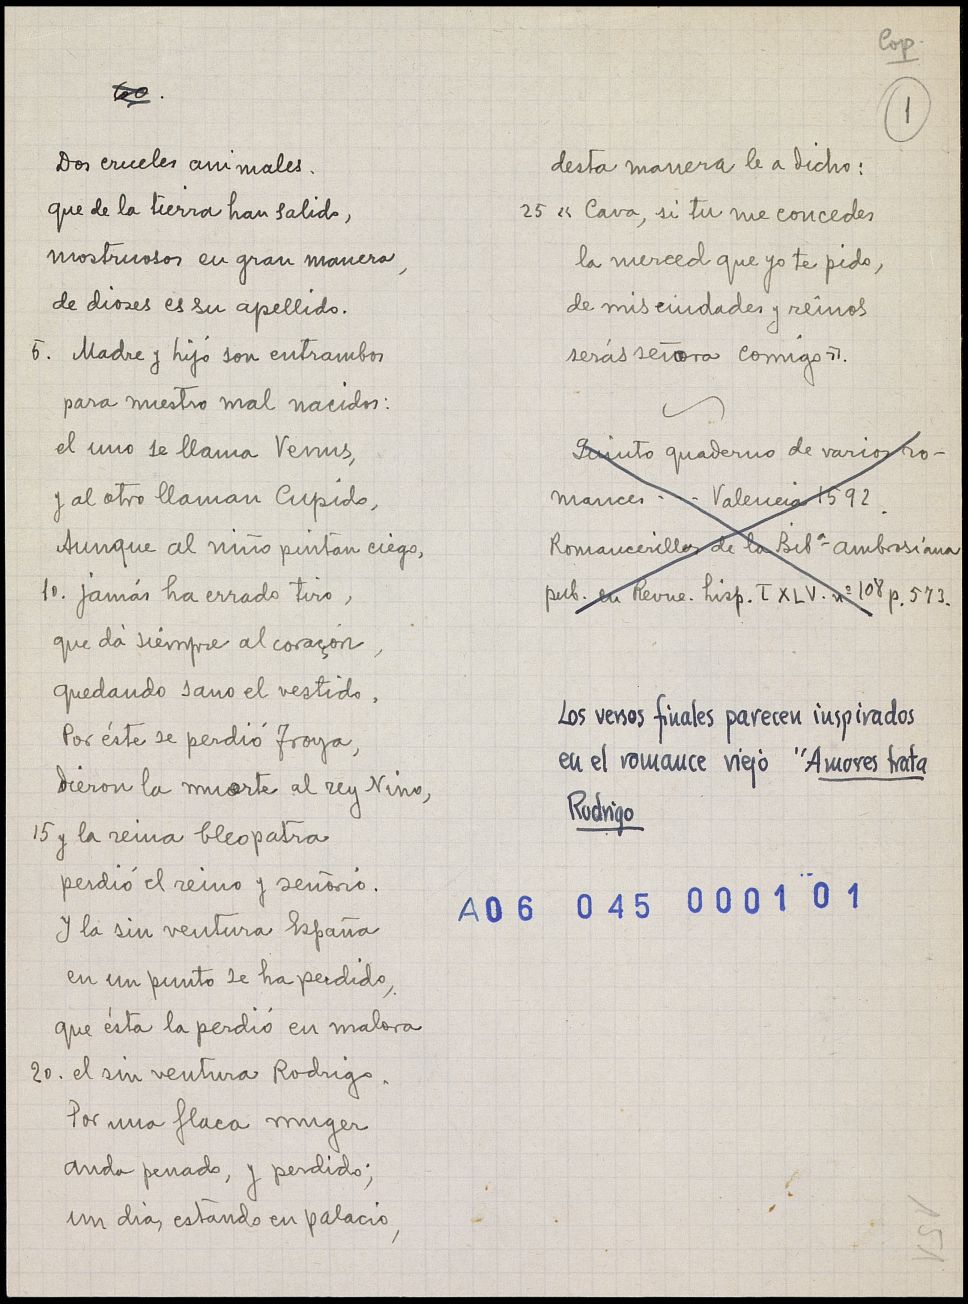 Cop.
1
Dos crueles animales.
que de la tierra han salido,
mostruosos en gran manera,
de dioses es su apellido.
5. Madre y hijo son entrambos
para nuestro mal nacidos:
el uno se llama Venus,
y al otro llaman Cupido,
Aunque al niño pintan ciego,
10. jamás ha errado tiro,
que dá siempre al coraçón,
quedando sano el vestido.
Por éste se perdió Troya,
dieron la muerte al rey Nino,
15 y la reina Cleopatra
perdió el reino y señorio.
Y la sin ventura España
en un punto se ha perdido,
que ésta la perdió en malora
20. el sin ventura Rodrigo.
Por una flaca muger
anda penado, y perdido;
un dia, estando en palacio,
desta manera le a dicho:
25 "Cava, si tu me concedes
la merced que yo te pido,
de mis ciudades y reinos
serás señora comigo".
Quinto quaderno de varios ro-
mances - - Valencia 1592.
Romancerillos de la Bibª ambrosiana
pub. en Revue. hisp. T XLV. nº 108 p. 573.
Los versos finales parecen inspirados
en el romance viejo "Amores trata
Rodrigo
A06 045 0001 01
151